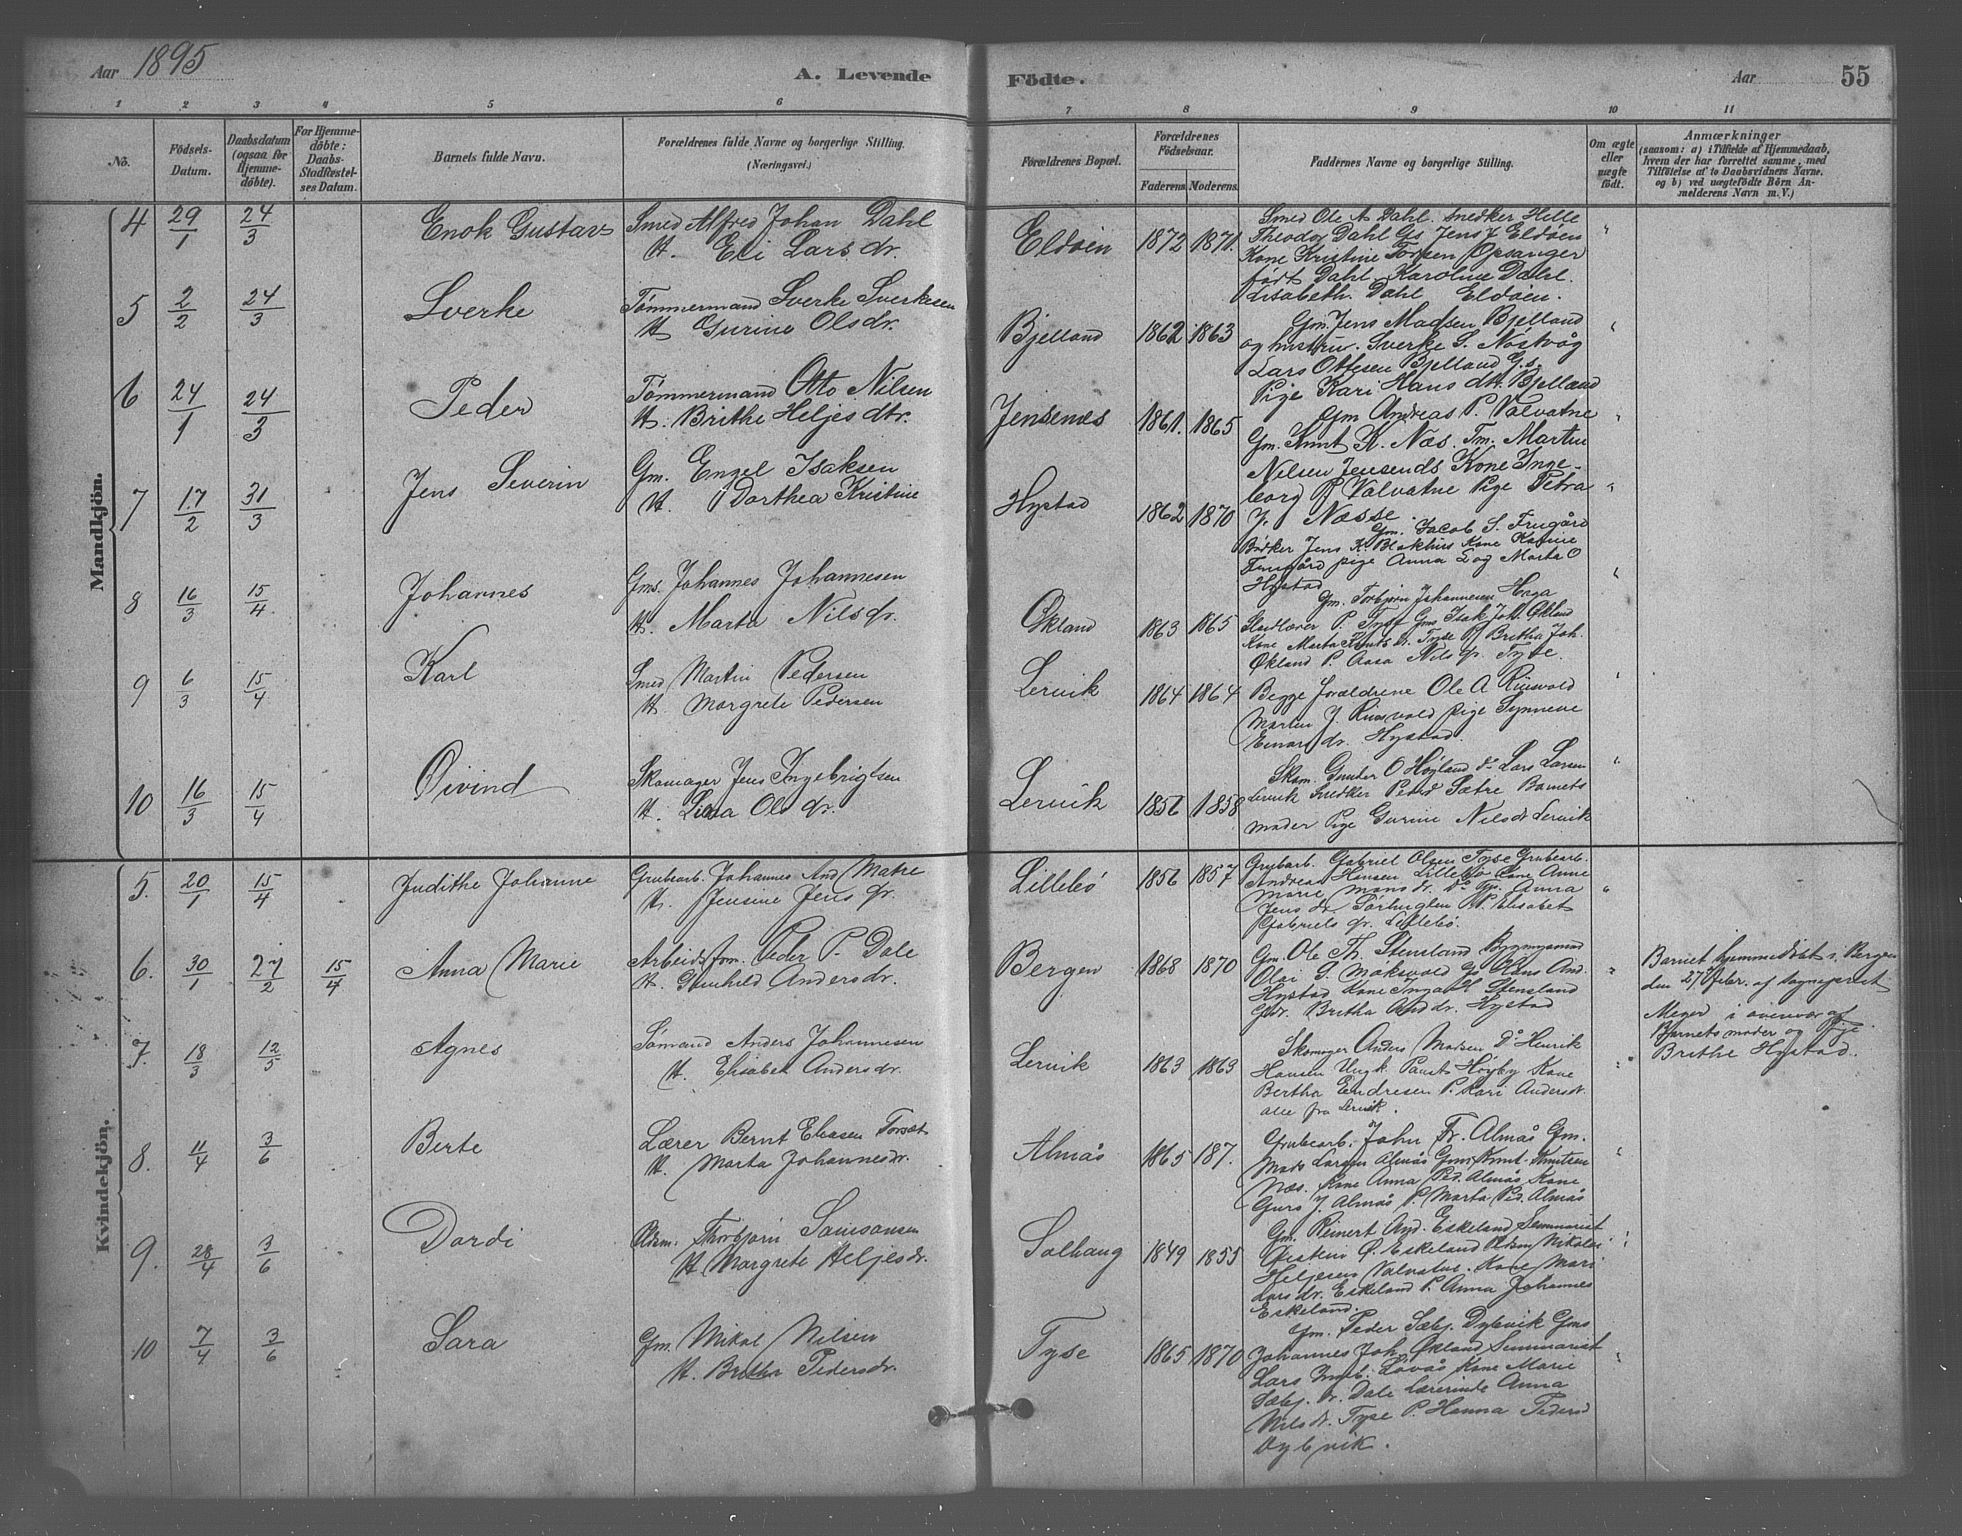 Aar 1895
A. Levende
Födte.
Aar
55
1 2 3 4 5 6 7 8 9 10 11
No.
Födsels-Datum.
Daabsdatum (ogsaa for Hjemmedöbte).
For Hjemmedöbte: Daabs-Stadfæstelses Datum.
Barnets fulde Navn.
Forældrenes fulde Navne og borgerlige Stilling. (Næringsvei.)
Forældrenes Bopæl.
Forældrenes Födselsaar.
Faderens. Moderens.
Faddernes Navne og borgerlige Stilling.
Om ægte eller uægte födt.
Anmærkninger
(saasom: a) i Tilfælde af Hjemmedaab, hvem der har forrettet samme, med Tilföielse af to Daabsvidners Navne, og b) ved uægtefödte Börn Anmelderens Navn m. V.)
Mandkjön.
4 29/1 24/3 Enok Gustav Smed Alfred Johan Dahl
H. Eli Larsdr. Eldöen 1872 1871.
Smed Ole A. Dahl. Snedker Helle
Theodor Dahl Gs Jens J Eldöen
Kone Kristine Torsen Opsanger
født Dahl. Karoline Dahl.
Lisabeth. Dahl Eldöen.
5 2/2 24/3 Sverke Tømmermand Sverke Sverkesen
H Gurine Olsdr. Bjelland 1862 1863
Gm. Jens Madsen Bjelland
og hustru. Sverke S. Nóstvåg
Lars Ottesen Bjelland Gs.
Pige Kari Hans dtr. Bjelland
6 24/1 24/3 Peder Tømmermand Otto Nilsen
H. Brithe Heljes dtr. Jensenes 1861. 1865
Gm Andreas P. Valvatne
Gm. Knut K. Næs. Tm. Martin
Nilsen Jensenes Kone Inge-
borg P Valvatne Pige Petra
J. Næsse.
7 17/2 31/3 Jens Severin Gm. Engel Isaksen
H. Dorthea Kristine Hystad 1862 1870
Gm. Jacob S. Frugård
Bødker Jens K. Blokhus Kone Karine
Frugård pige Anna L og Marta O
Hystad
8 16/3 15/4. Johannes Gms. Johannes Johannesen
H. Marta Nilsdr. Økland 1863 1865
Gm. Torbjørn Johannesen Haga
P. Tyse Gms Isak Joh. Økland
Kone Marta Knuts dr. Tyse P/ Britha Joh.
Økland P. Aasa Nilsdr. Tyse.
9 6/3 15/4 Karl Smed Martin Pedersen
H. Margrete Pedersen Lervik 1864 1864
Begge forældrene Ole A Rinsvold
Martin J. Rinsvold pige Synneve
Einars dr. Hystad.
10 16/3 15/4 Øivind Skomager Jens Ingebrigtsen
H. Lina Ols dr. Lervik 1856 1858
Skom. Gunder O Høyland do Lars Larsen
Lervik Snedker Peder Sætre Barnets
moder Pige Gurine Nilsdr Lervik
Kvindekjön.
5. 20/1 15/4 Judithe Johanne Grubearb. Johannes And Matre
H. Jensine Jens dr. Lillebó 1856 1857
Grubarb. Gabriel Olsen Tyse Grubearb.
Andreas Hansen Lillebø Kone Anne
Marie Mons dr. do Tjp. Anna
Jens dr. P. Elisabet
Gabriels dr. Lillebó.
6. 30/1 27/2 15/4 Anna Marie Arbeidsfom. Peder P. Dale
H. Gunhild Andersdr. Bergen 1868 1870
Gm. Ole Th. Stensland Bygningsmand
Olai S. Moksvold Gs Hans And.
Hystad Kone Inga H. Stensland
Gdr. Britha And dr. Hystad
Barnet hjemmedøbt i Bergen
den 27 Febr. af sognepræst
Meyer i overvær af
Barnets moder og Pige
Brithe Hystad.
7. 18/3 12/5 Agnes Sømand Anders Johannesen
H. Elisabet Andersdr. Lervik 1863 1863
Skomager Anders Madsen Do Henrik
Hansen Ungk. Paust Høyby Kone
Bertha Endresen P. Kari Andersdr.
alle fra Lervik.
8. 11/4 3/6 Berte Lærer Bernt Eliasen Torsæt
H. Marta Johannesdr. Almås 1865 187.
Grubearb. John Fr. Almås Gm.
Mads Larsen Almås Gms Knut Knutsen
Næs. Kone Anna Ped. Almås Kone
Guro J. Almås P. Marta Ped. Almås
9. 28/4 3/6 Dordi Oldm. Thorbjørn Samsonsen
H Margrete Heljesdr. Solhaug 1849 1855
Gm. Reinert And. Eskeland Seminarist
Øistein Ø. Eskeland Oldm Nikolai
Heljesen Valvatne. Kone Mari
Lars dr. Eskeland P. Anna Johannes
Eskeland.
10 7/4 3/6 Sara Gm. Mikal Nilsen
H. Britha Pedersdr. Tyse 1865 1870
Gm. Peder Sæbj. Dybvik Gms
Johannes Joh. Økland Seminarist
Lars Ingeb. Løvås Kone Marie
Sæbj. dr. Dale Lærerinde Anna
Nils dr. Tyse P. Hanna Peders
Dybvik.